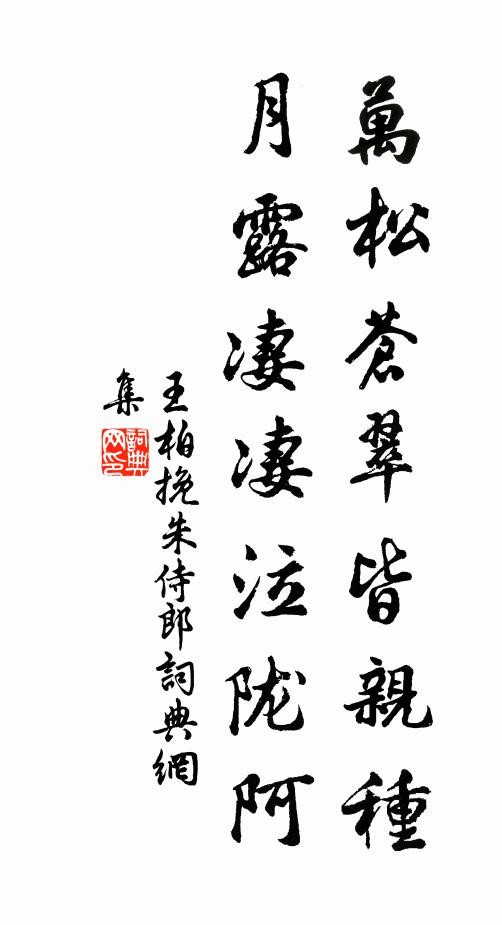 萬松蒼翠皆親種
月露凄凄泣陇阿
王柏挽朱侍郎詞典網
集
詞典
网印